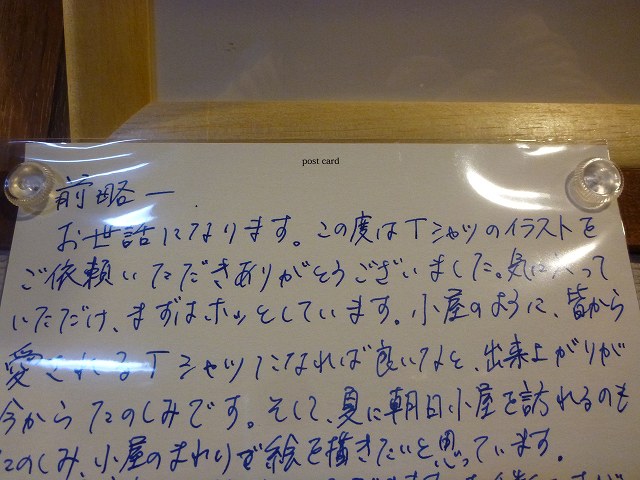 post card
前略ー.
お世話になります。この度はTシャツのイラストを
ご依頼いただきありがとうございました。気に入って
いただけ、まずはホッとしています。小屋のように、皆から
愛されるTシャツになれば良いなと、出来上がりが
今からたのしみです。そして、夏に朝日小屋を訪れるのも
たのしみ、小屋のまわりで絵を描きたいと思っています。